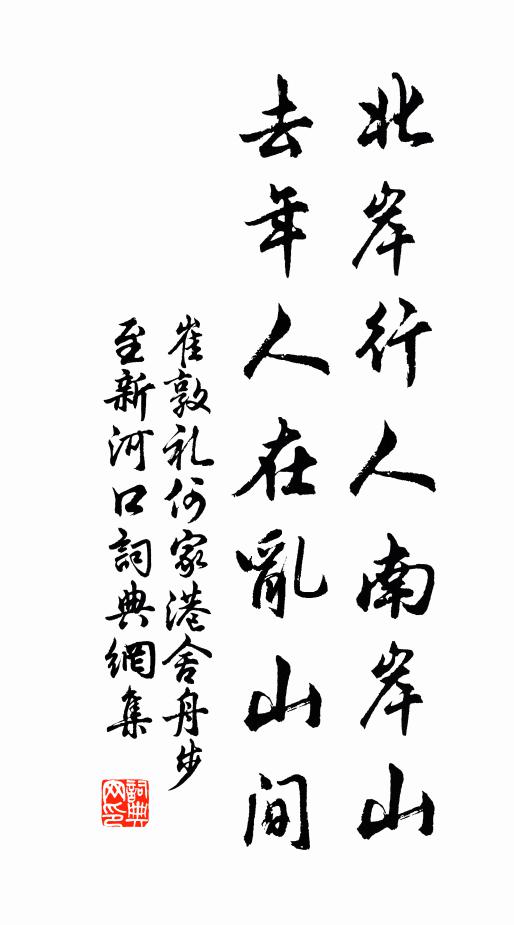 北岸行人南岸山
去年人在亂山間
崔敦礼何家港舍舟步
至新河口詞典網集
詞典
网印